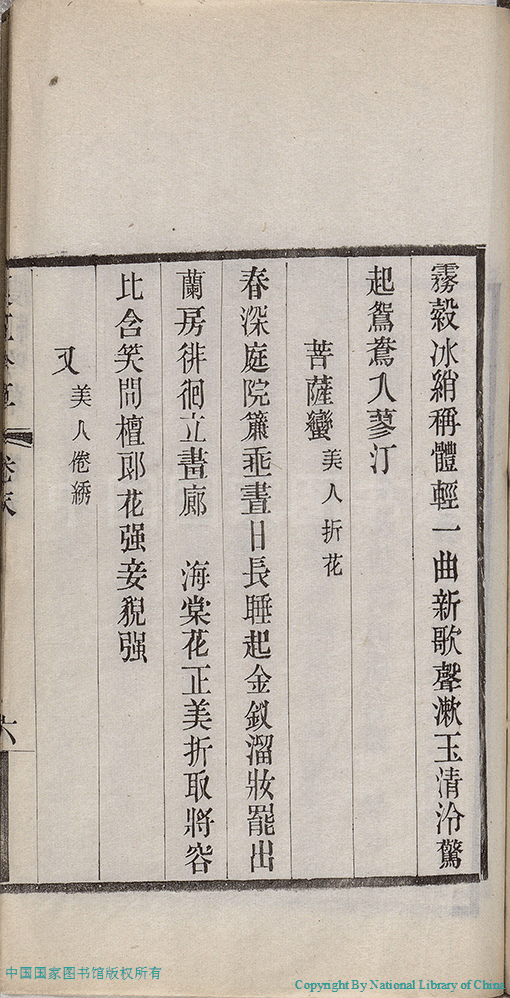 霧縠冰綃稱體輕一曲新歌聲漱玉清泠驚
起鴛鴦入蓼汀
菩薩蠻 美人折花
春深庭院簾垂晝日長睡起金釵溜妝罷出
蘭房徘徊立畫廊　海棠花正美折取將容
比含笑問檀郎花强妾貌强
又 美人倦綉
六
中国国家图书馆版权所有
Copyright By National Library of China